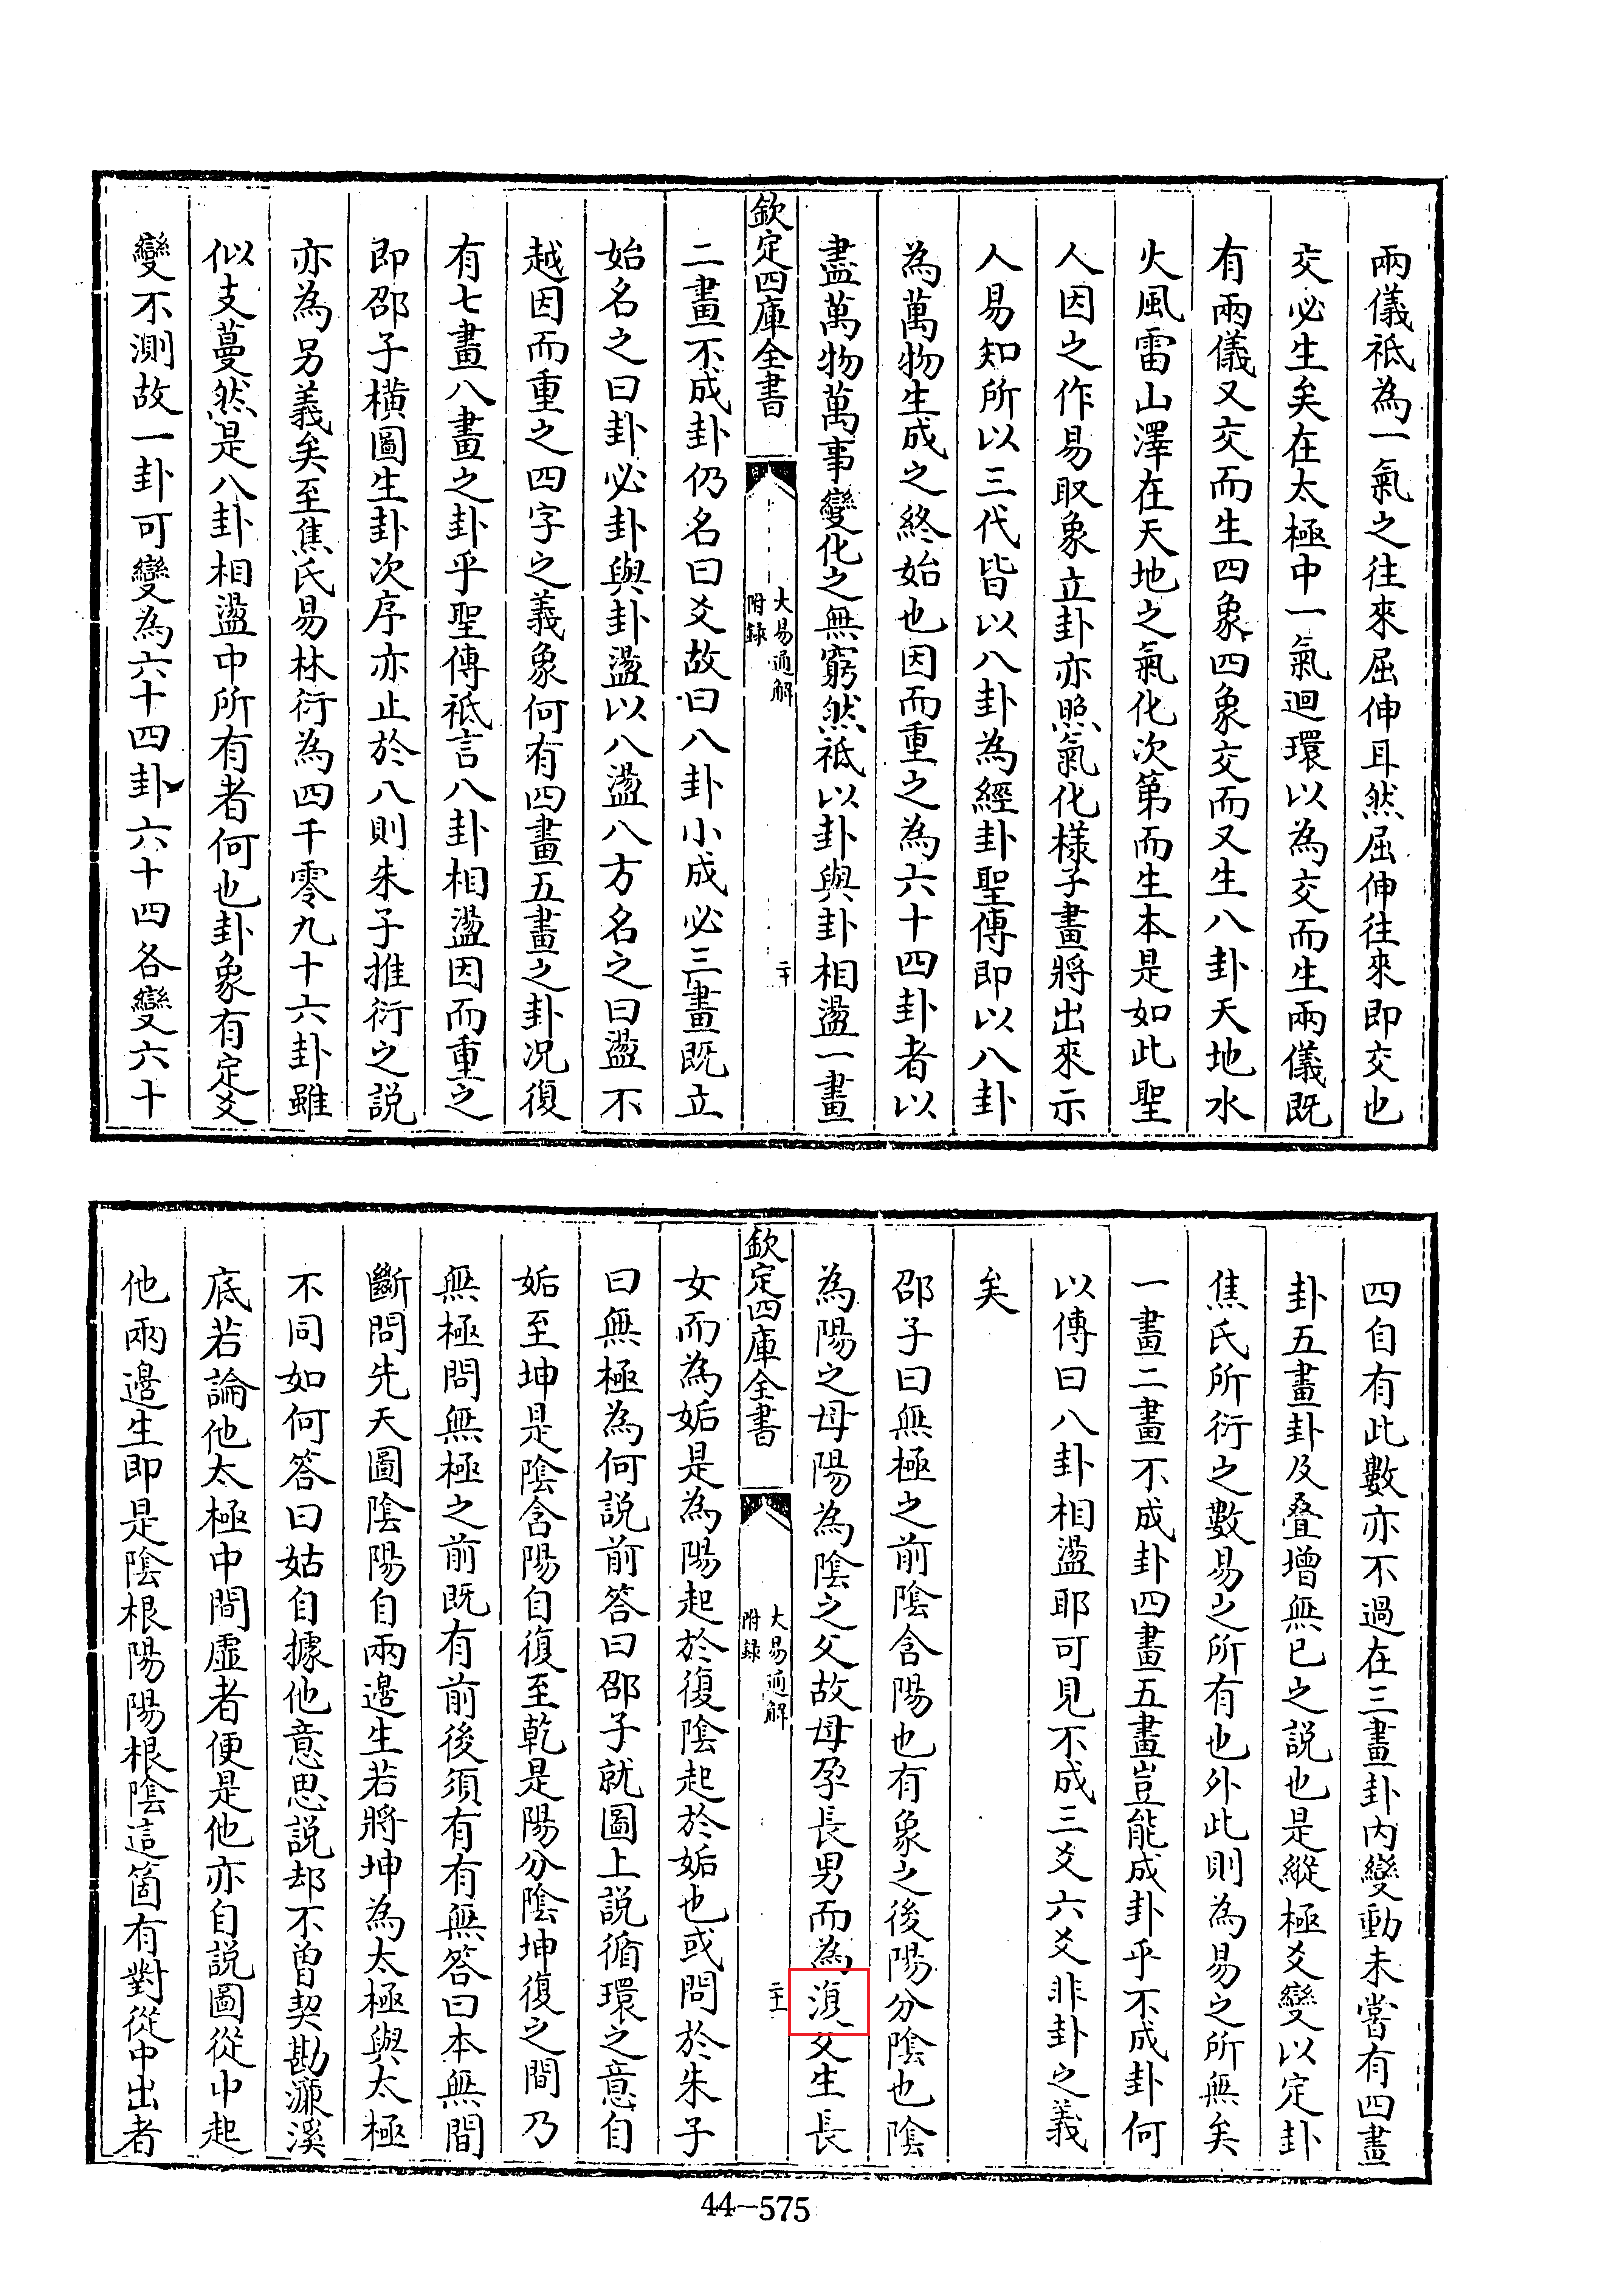 兩儀祗為一氣之往來屈伸耳然屈伸往來即交也
交必生矣在太極中一氣迴環以為交而生兩儀既
有兩儀又交而生四象四象交而又生八卦天地水
火風雷山澤在天地之氣化次第而生本是如此聖
人因之作易取象立卦亦照氣化様子畫將出來示
人易知所以三代皆以八卦為經卦聖傳即以八卦
為萬物生成之終始也因而重之為六十四卦者以
盡萬物萬事變化之無窮然祗以卦與卦相盪一畫
欽定四庫全書
大易通解
附録
二十
二畫不成卦仍名曰爻故曰八卦小成必三畫既立
始名之曰卦必卦與卦盪以八盪八方名之曰盪不
越因而重之四字之義象何有四畫五畫之卦况復
有七畫八畫之卦乎聖傳祗言八卦相盪因而重之
即邵子橫圖生卦次序亦止於八則朱子推衍之説
亦為另義矣至焦氏易林衍為四千零九十六卦雖
似支蔓然是八卦相盪中所有者何也卦象有定爻
變不測故一卦可變為六十四卦六十四各變六十
四自有此數亦不過在三畫卦内變動未嘗有四畫
卦五畫卦及叠增無已之説也是縱極爻變以定卦
焦氏所衍之數易之所有也外此則為易之所無矣
一畫二畫不成卦四畫五畫豈能成卦乎不成卦何
以傳曰八卦相盪耶可見不成三爻六爻非卦之義
矣
邵子曰無極之前陰含陽也有象之後陽分陰也陰
為陽之母陽為陰之父故母孕長男而為湏父生長
欽定四庫全書
大易通解
附録
二十一
女而為姤是為陽起於復陰起於姤也或問於朱子
曰無極為何説前答曰邵子就圖上説循環之意自
姤至坤是陰含陽自復至乾是陽分陰坤復之間乃
無極問無極之前既有前後須有有無答曰本無間
斷問先天圖陰陽自兩邉生若將坤為太極與太極
不同如何答曰姑自據他意思説却不曽契勘濂溪
底若論他太極中間虚者便是他亦自説圖從中起
他兩邉生即是陰根陽陽根陰這箇有對從中出者
44-575